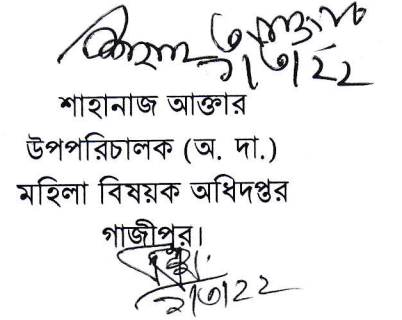 ২।৩।২২
শাহানাজ আক্তার
উপপরিচালক (অ. দা.)
মহিলা বিষয়ক অধিদপ্তর
গাজীপুর।
২।৩।২২